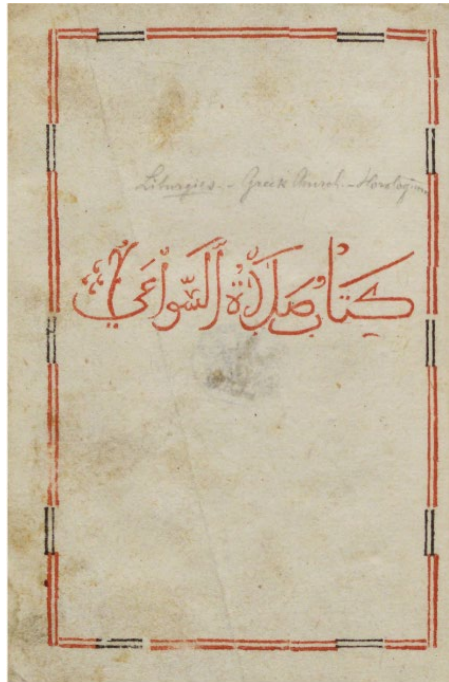 Liturgies. - Greek Church. - Horologium
كِتَابُ صَلَاةِ السَّوَاعِي